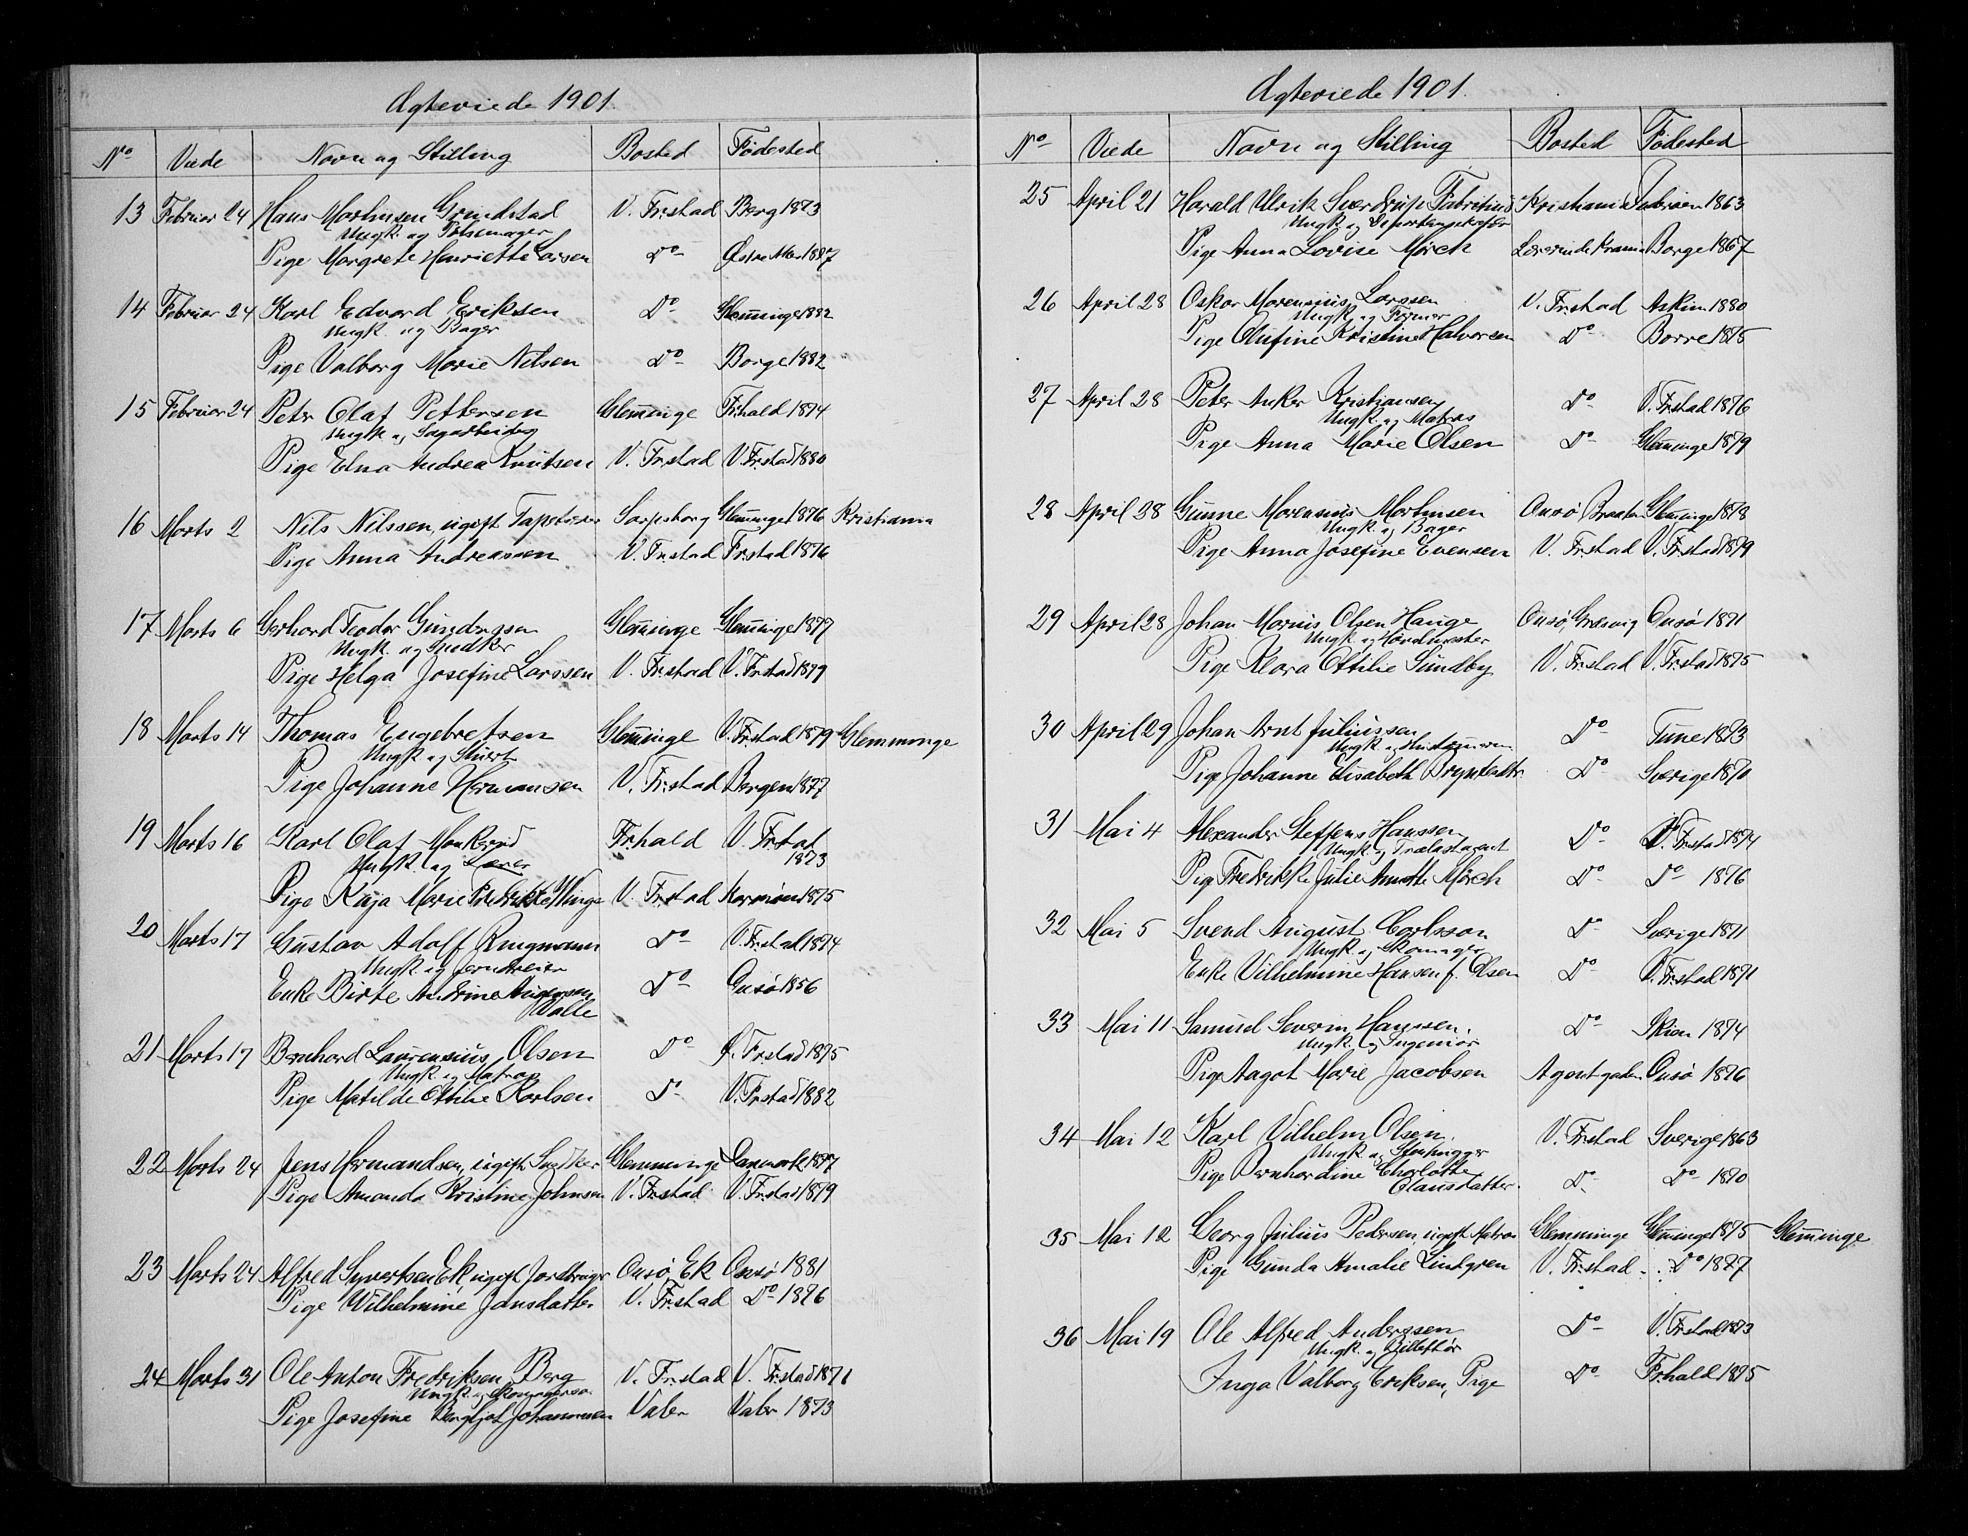 Ægteviede 1901.
No Viede Navn og Stilling Bosted Fødested
13 Februar 24 Hans Morhinsen Grindstad V. Fr.stad Berg 1873
Ungk. og Pølsemager
Pige Margrete Henriette Larsen Do Østre 1887
14 Februar 24 Karl Edvard Eriksen Do Glem̄inge 1882
Ungk. og Bager
Pige Valborg Marie Nilsen Do Borge 1882
15 Februar 24 Peter Olaf Pettersen Glem̄inge Fr.hald 1874
Ungk. og Sagarbeider
Pige Elna Andrea Knutsen V. Fr.stad V. Fr.stad 1880
16 Marts 2 Nils Nilssen, ugift Tapetserer Sarpsborg Glem̄inge 1876 Kristiania
Pige Anna Andreassen V. Fr.stad Fr.stad 1876
17 Marts 6 Gerhard Teodor Gundersen Glem̄inge Glem̄inge 1877
Ungk. og Snedker
Pige Helga Josefine Larssen V. Fr.stad V. Fr.stad 1879
18 Marts 14 Thomas Engebretsen Glem̄inge V. Fr.stad 1879 Glemminge
Ungk. og Stuert
Pige Johanne Hermansen V. Fr.stad Bergen 1877
19 Marts 16 Karl Olaf Fr.hald V. Fr.stad
1873
Ungk. og Lærer
Pige Kaja Marie Fredrikke Winge V. Fr.stad Karmøen 1875
20 Marts 17 Gustav Adolf Ringmann Do V. Fr.stad 1874
Ungk. og Jerndreier
Enke Birte Andrine Do Onsø 1856
Walle
21 Marts 17 Bernhard Laurensius Olsen Do Ø. Fr.stad 1875
Ungk. og Matros
Pige Matilde Ottilie Karlsen Do V. Fr.stad 1882
22 Marts 24 Jens Hermandsen, ugift Snedker Glemminge Danmark 1877
Pige Amanda Kristine Johnsen V. Fr.stad V. Fr.stad 1879
23 Marts 24 Alfred Syvertsen Ek, ugift Jordbruger Onsø, Ek Onsø 1881
Pige Wilhelmine Jansdatter V. Fr.stad Do 1876
24 Marts 31 Ole Anton Fredriksen Berg V. Fr.stad V. Fr.stad 1871
Ungk. og
Pige Josefine Bergljot Johannesen Valer Valer 1873
Ægteviede 1901.
No Viede Navn og Stilling Bosted Fødested
25 April 21 Harald Ulrik Sverdrup Fabritius Kristiania 1863
Ungk. og
Pige Anna Lovise Mörch Borge 1867
26 April 28 Oskar Marensius Larssen V. Fr.stad Askim 1880
Ungk. og Former
Pige Olufine Kristine Halvorsen Do Borre 1875
27 April 28 Peter Anker Kristiansen Do V. Fr.stad 1876
Ungk. og Matros
Pige Anna Marie Olsen Do Glem̄inge 1879
28 April 28 Gunne Marensius Morhinsen Onsø Glem̄inge 1878
Ungk. og Bager
Pige Anna Josefine Evensen V. Fr.stad V. Fr.stad 1879
29 April 28 Johan Marius Olsen Hauge Onsø, Græsvig Onsø 1871
Ungk. og
Pige Klara Ottilie Sundby V. Fr.stad V. Fr.stad 1875
30 April 29 Johan Arnt Juliussen Do Tune 1873
Ungk. og
Pige Johanne Elisabeth Do Sverige 1870
31 Mai 4 Alexander Steffens Hanssen Do V. Fr.stad 1874
Ungk. og Trælastagent
Pige Fredrikke Julie Anette Mörch Do Do 1876
32 Mai 5 Svend August Carlsson Do Sverige 1871
Ungk. og Skomager
Enke Vilhelmine Hansen f. Olsen Do V. Fr.stad 1871
33 Mai 11 Samuel Severin Hanssen. Do Skien 1874
Ungk. og Ingeniør
Pige Aagot Marie Jacobsen Agentgaden Onsø 1876
34 Mai 12 Karl Vilhelm Olsen. V. Fr.stad Sverige 1863
Ungk. og Stenhugger
Pige Bernhardine Charlotte
Olausdatter. Do Do 1870
35 Mai 12 Georg Julius Pedersen ugift Matros Glemminge Glem̄inge 1875 Glem̄inge
Pige Gunda Amalie Lindgren V. Fr.stad Do 1877
36 Mai 19 Ole Alfred Anderssen Do V. Fr.stad 1873
Ungk. og Billettør
Inga Valborg Eriksen, Pige Do Fr.hald 1875